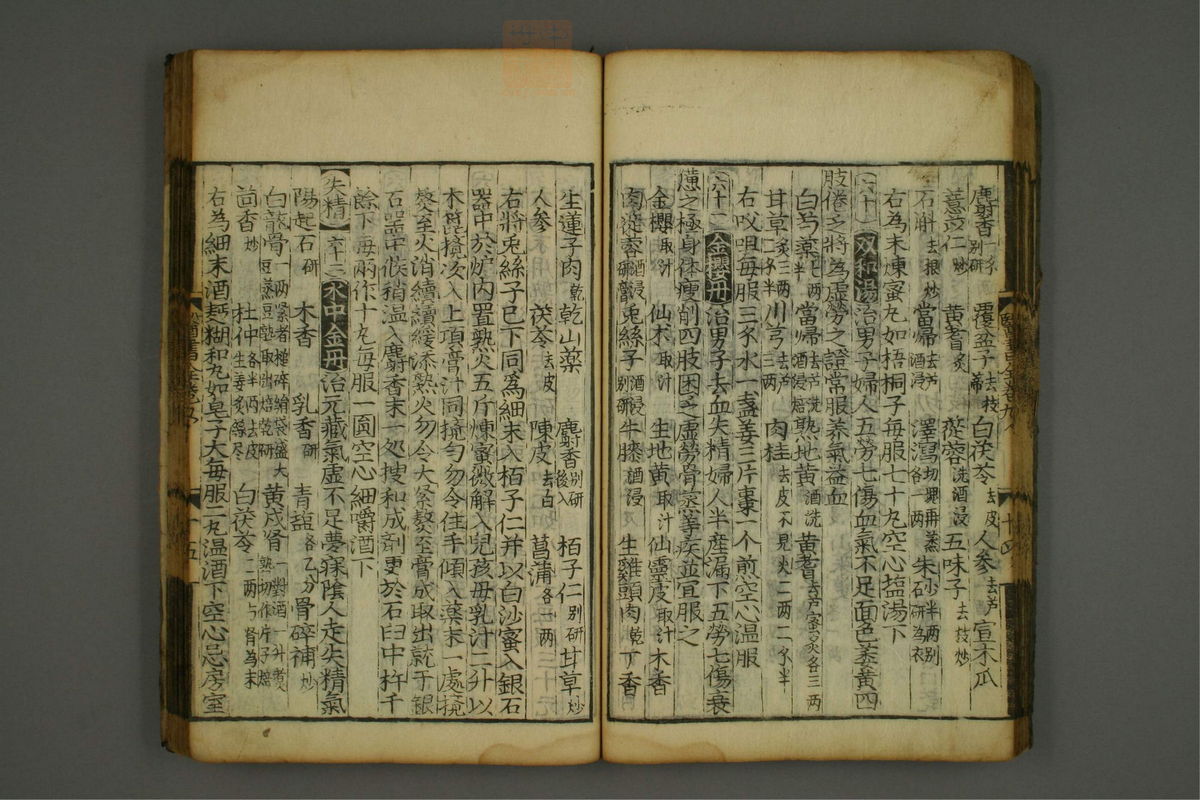 麝香一分別研 覆盆子去枝蒂 白茯苓去皮 人参去芦 宣木瓜
薏苡仁炒 黄耆炙 蓯蓉洗酒浸 五味子去枝炒
石斛去根炒 當歸去芦酒浸 澤瀉切塊再蒸各一两 朱砂半两別研為衣
右為末煉蜜丸如梧桐子每服七十丸空心塩湯下
六十一 双和湯治男子婦人五勞七傷血氣不足面色萎黄四
肢倦乏將為虛勞之證當服養氣益血
白芍藥七两半 當歸去芦洗酒浸焙 熟地黄酒洗 黄耆去芦蜜炙各三两
甘草炙三两二分半 川芎去芦三两 肉桂去皮不見火二两二分半
右㕮咀每服三分水一盞姜三片棗一个煎空心温服
六十二 金櫻丹治男子去血失精婦人半産漏下五勞七傷衰
憊之極身体瘦削四肢困乏虛勞骨蒸等疾並宜服之
金櫻取汁 仙术取汁 生地黄取汁 仙靈皮取汁 木香
肉蓯蓉酒浸研膏 兎絲子酒浸別研 牛膝酒浸 生雞頭肉乾 丁香
生蓮子肉乾 乾山藥 麝香別研後入 栢子仁別研 甘草炒
人参 茯苓去皮 陳皮去白 菖蒲各二两
右將兎絲子已下同為細末入栢子仁并以白沙蜜入銀石
器中於炉内置熟火五斤煉蜜微解入兒孩母乳汁二升以
木篦攪次入上項膏汁同攪勻勿令住手傾入藥末一處攪
熬至火消續續緩添熟火勿令大緊熬至膏成取出就于銀
石器中候稍温入麝香末一処搜和成剤更於石臼中杵千
餘下每两作十丸每服一圓空心細嚼酒下
失精 六十三 水中金丹治元藏氣虛不足夢寐陰人走失精氣
陽起石研 木香 乳香研 青塩各乙分 骨碎補炒
白龍骨一两緊者槌碎絹袋盛大豆蒸豆塾取出焙乾研 黄戍肾一對酒一升煮熟切作片子焙
茴香炒 杜仲各半两去皮生姜炙絲尽 白茯苓二两与肾為末
右為細末酒麪糊和丸如皂子大每服二丸温酒下空心忌房室